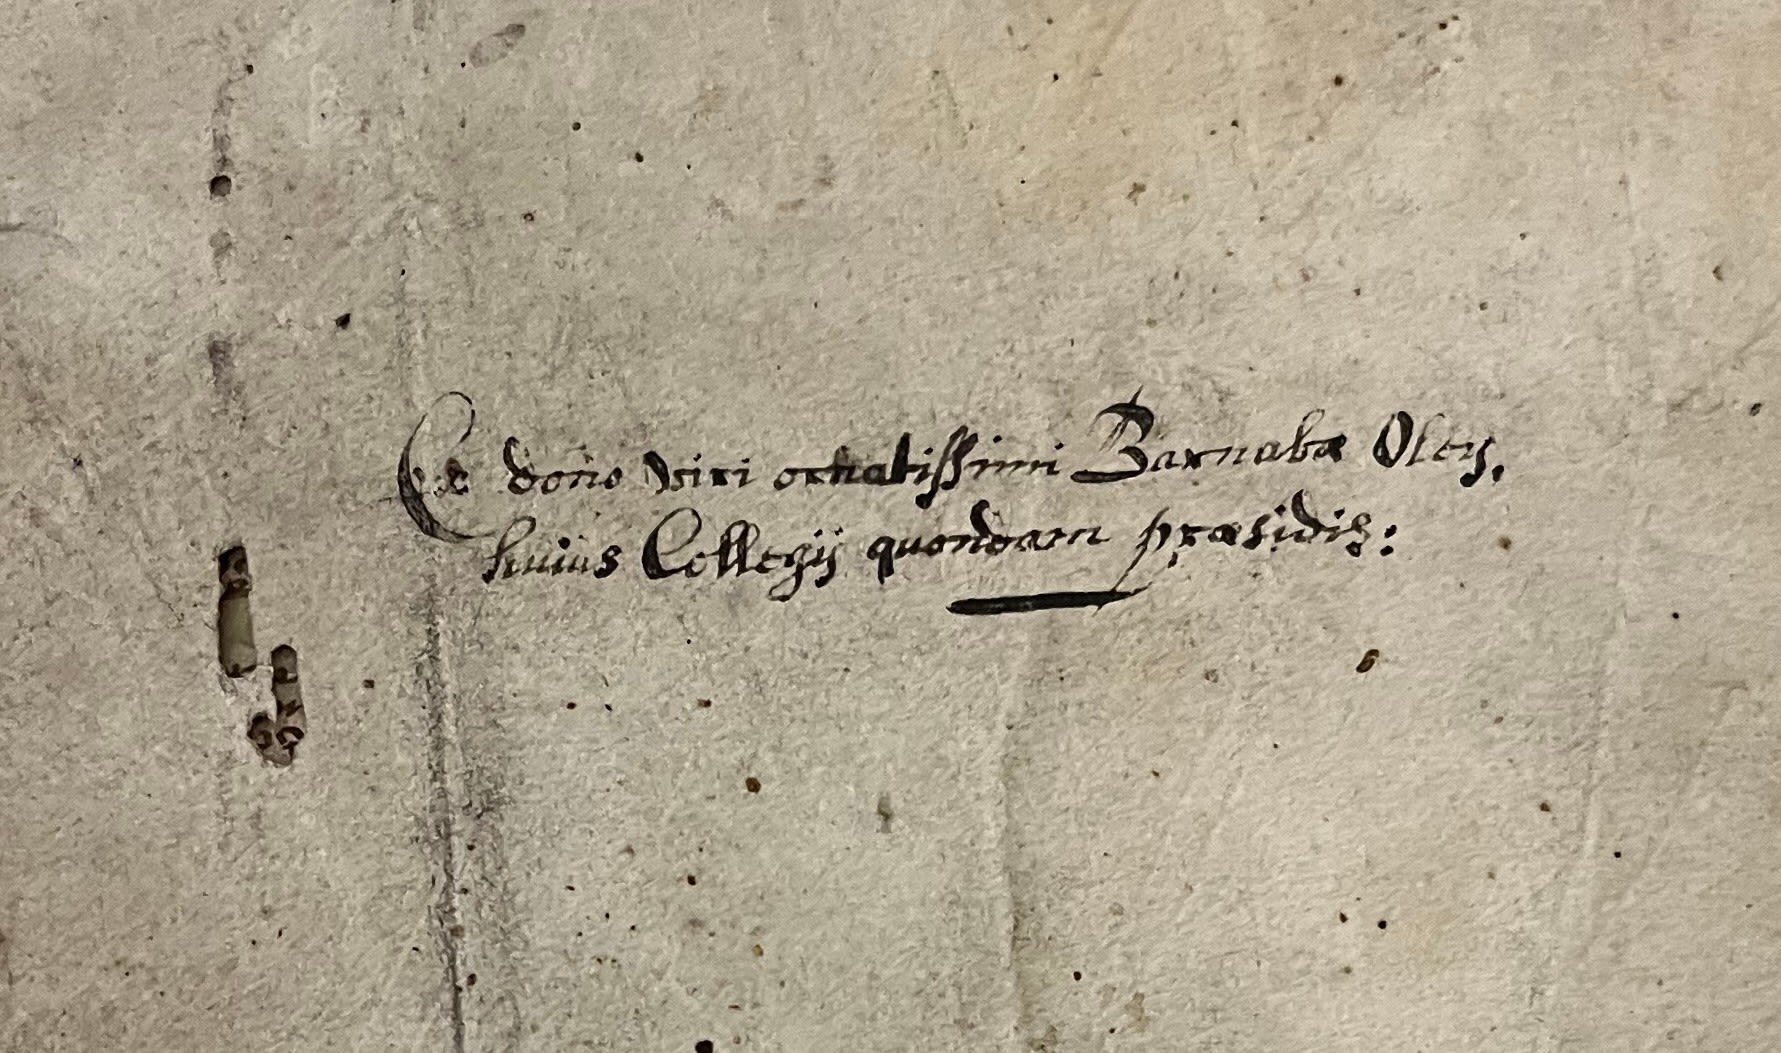 Ex dono viri ornatissimi Barnabæ Oley,
huius Collegij quondam præsidis: